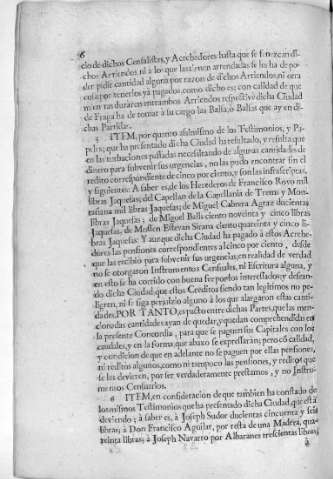 6
cio de dichos Censalistas, y Acrehedores hasta que se fenezcan di-
chos Arriendos, ni à los que los tuviessen arrendados se les ha de po-
der pedir cantidad alguna por razon de dichos Arriendos, ni otra
cosa por tenerlos yà pagados, como dicho es; con calidad de que
mientras duràren entrambos Arriendos respectivè dicha Ciudad
de Fraga ha de tomar à su cargo las Balsa, ò Balsas que ay en di-
chas Partidas.
5 ITEM, por quanto assimismo de los Testimonios, y Pa-
peles, que ha presentado dicha Ciudad ha resultado, y resulta que
en las turbaciones passadas necessitando de algunas cantidades de
dinero para subvenir sus urgencias, no las pudo encontrar sin el
redito correspondiente de cinco por ciento, y son las infrascriptas,
y siguientes: A saber es, de los Herederos de Francisco Royo mil
libras Jaquesas; del Capellan de la Capellanìa de Trema y Mon-
tañana mil libras Jaquesas; de Miguel Cabrera Agraz ducientas
libras Jaquesas; de Miguel Balls ciento noventa y cinco libras
Jaquesas; de Mossen Estevan Sirana ciento quarenta y cinco li-
bras Jaquesas: Y aunque dicha Ciudad ha pagado à estos Acrehe-
dores las pensiones correspondientes à cinco por ciento, desde
que las recibio para subvenir sus urgencias, en realidad de verdad
no se otorgaron Instrumentos Censales, ni Escritura alguna, y
en esto se ha corrido con buena fee por los interessados; y desean-
do dicha Ciudad, que estos Creditos siendo tan legitimos no pe-
ligren, ni se siga perjuizio alguno à los que alargaron estas canti-
dades, POR TANTO, es pacto entre dichas Partes, que las men-
cionadas cantidades ayan de quedar, y quedan comprehendidas en
la presente Concordia, para que se paguen sus Capitales con los
caudales, y en la forma, que abaxo se expressaràn; pero cõ calidad,
y condicion de que en adelante no se paguen por ellas pensiones,
ni redito algunos, como ni tampoco las pensiones, y reditos que
se les devieren, por ser verdaderamente prestamos, y no Instru-
mentos Censarios.
6 ITEM, en consideracion de que tambien ha constado de
los mismos Testimonios que ha presentado dicha Ciudad, que està
deviendo; à saber es, à Joseph Sudor ducientas cincuenta y seis
libras; à Don Francisco Aguilar, por resta de una Madrea, qua-
renta libras; à Joseph Navarro por Albaranes trescientas libras;
à